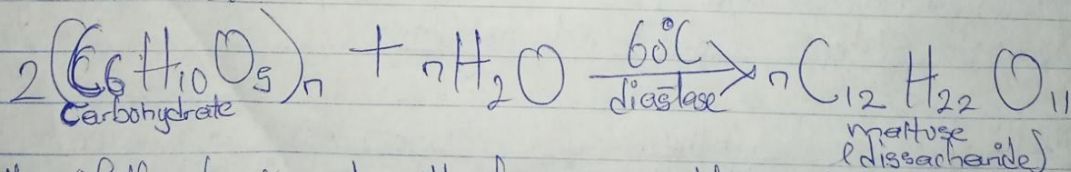 2(C6H10O5)n + nH2O 60°C diastase → nC12H22O11
Carbohydrate
maltose
(dissacharide)